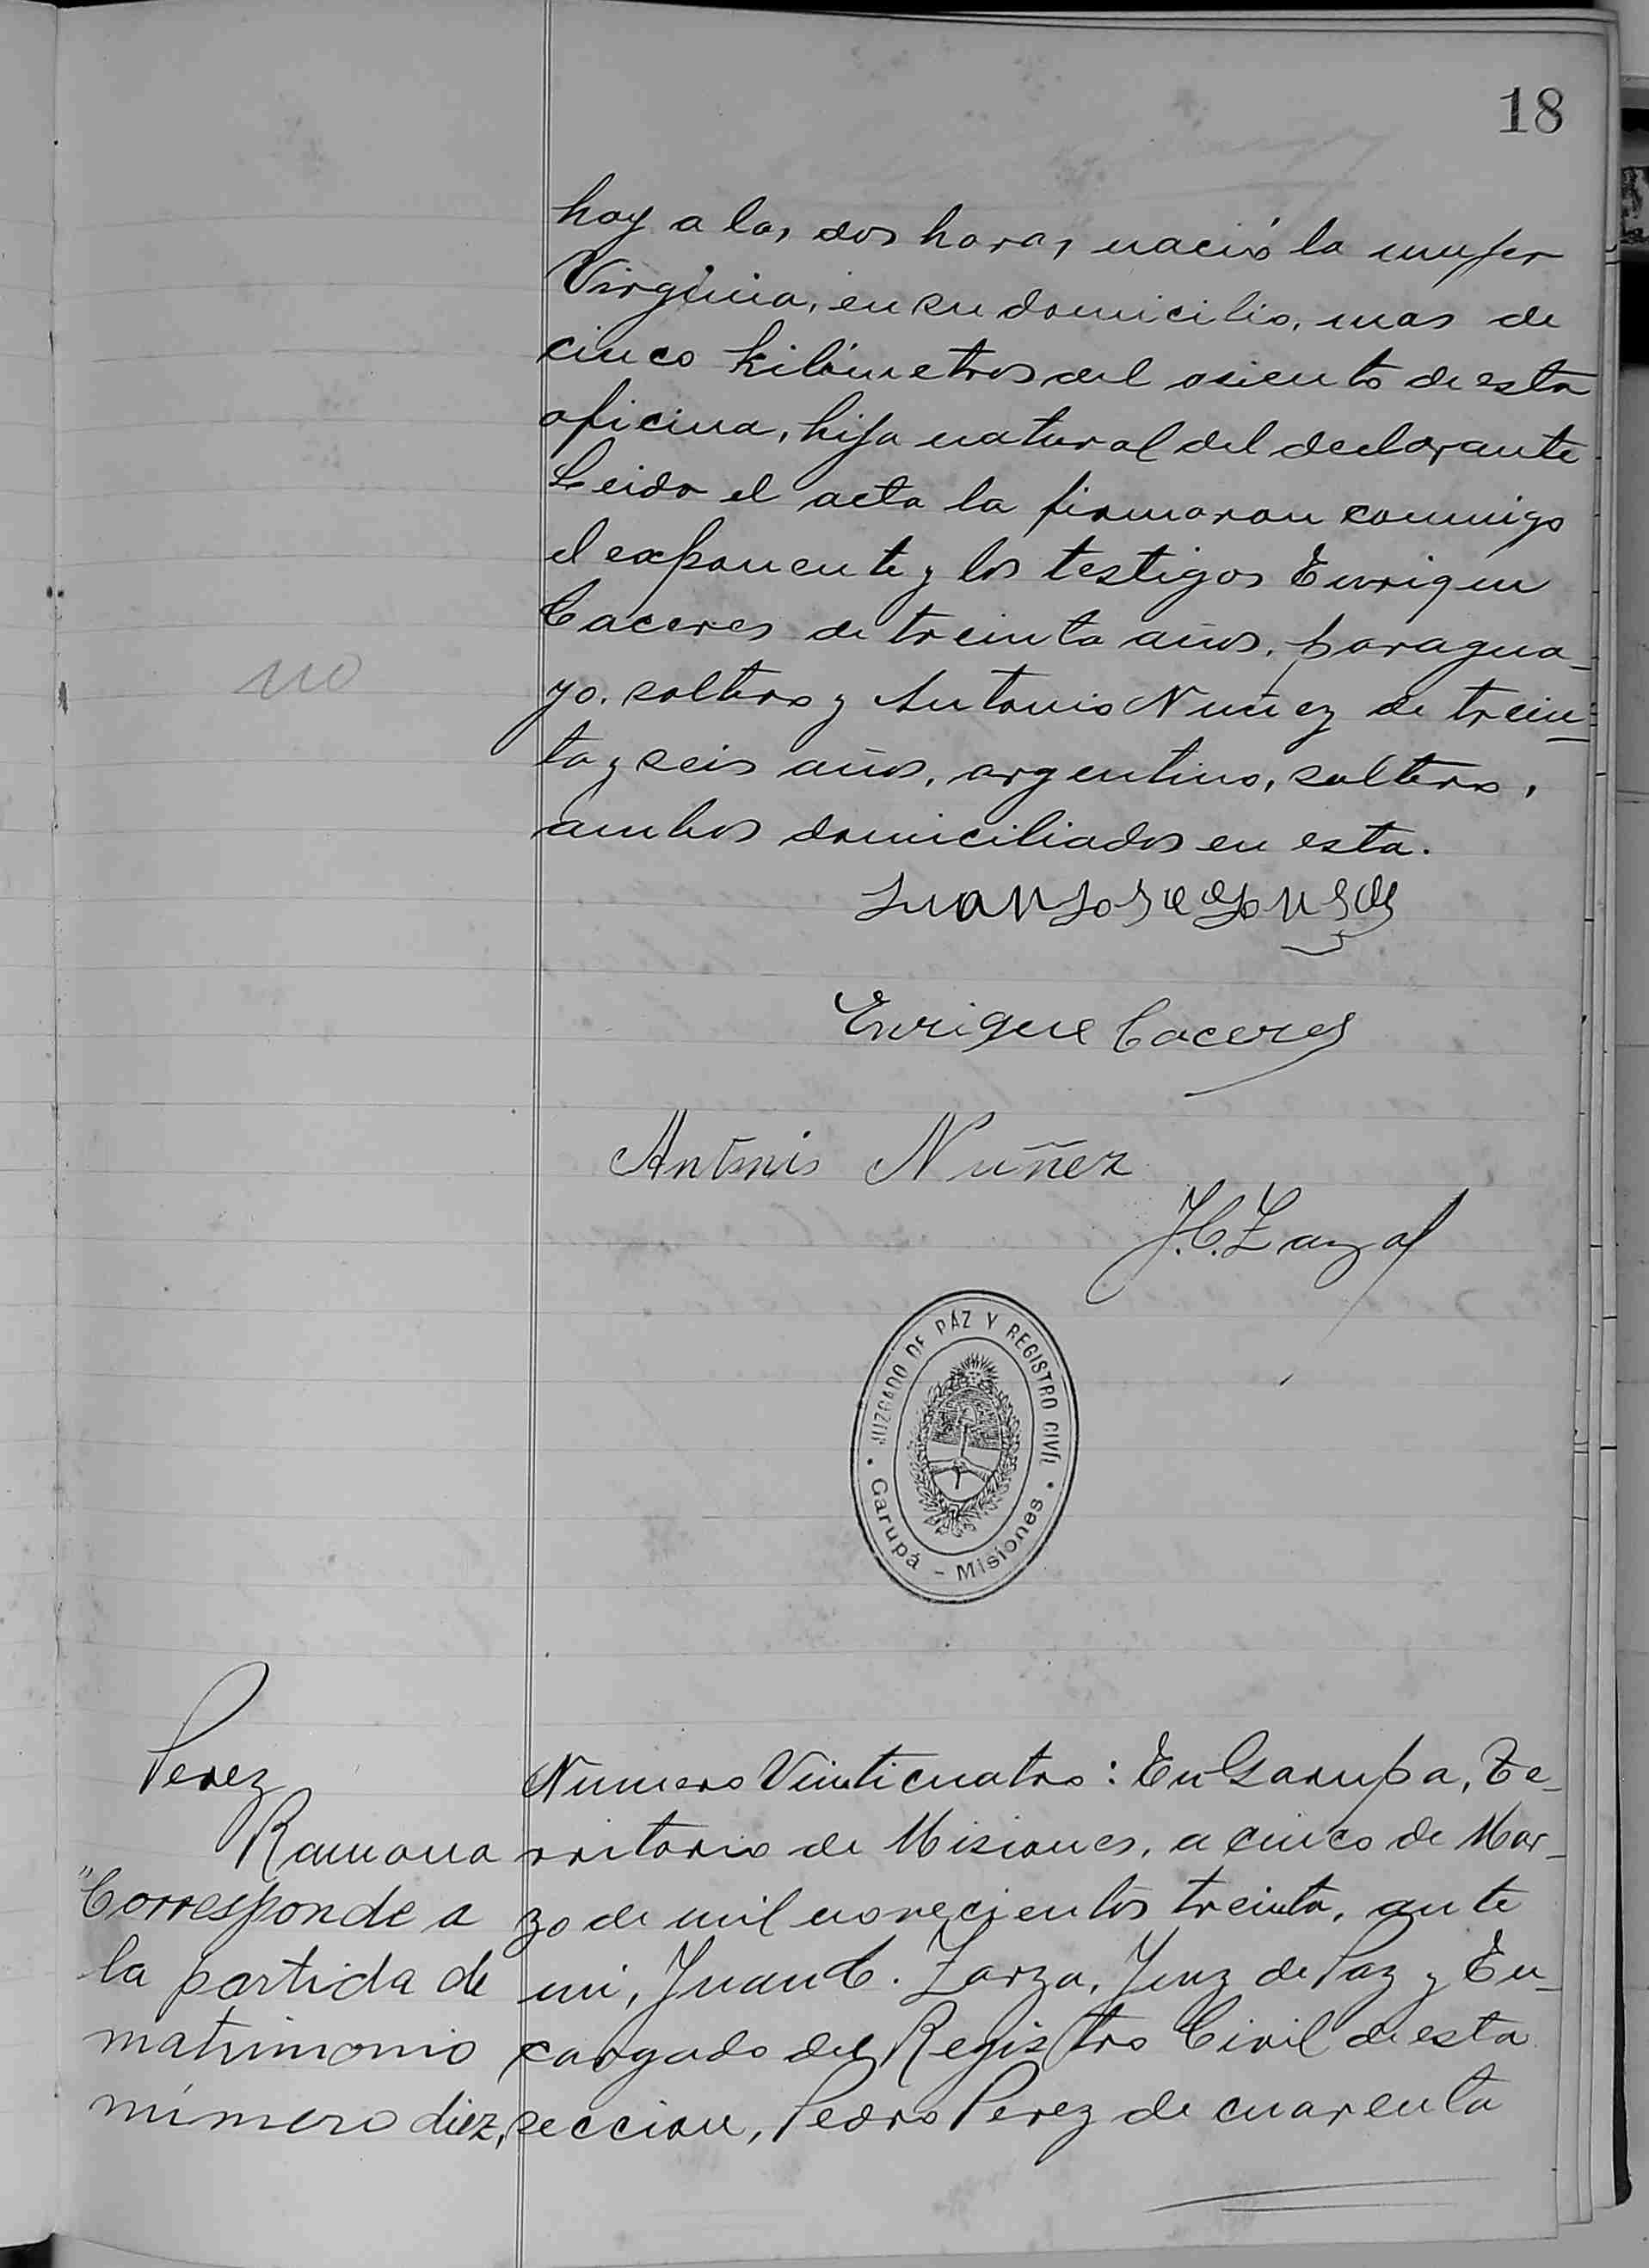 18
hoy a las dos horas nació la mujer
Virginia, en su domicilio, mas de
cinco kilómetros del asiento de esta
oficina, hija natural del declarante
Leida el acta la firmaron conmigo
el exponente y los testigos Enrique
Caceres de treinta años, paragua-
yo. soltero y Antonio Nuñez de trein-
ta y seis años, argentino, soltero,
ambos domiciliados en esta.
no
Juan Jose
Enrique Caceres
Antonio Nuñez
J.C. Zarza
JUZGADO DE PAZ Y REGISTRO CIVIL
Garupá - Misiones
Perez
Ramona
"Corresponde a
la partida de
matrimonio
número diez,
Numero Veinticuatro: En Garupa, Te-
rritorio de Misiones, a cinco de Mar-
zo de mil novecientos treinta, ante
mi, Juan C. Zarza, Juez de Paz y En-
cargado del Registro Civil de esta
seccion, Pedro Perez de cuarenta